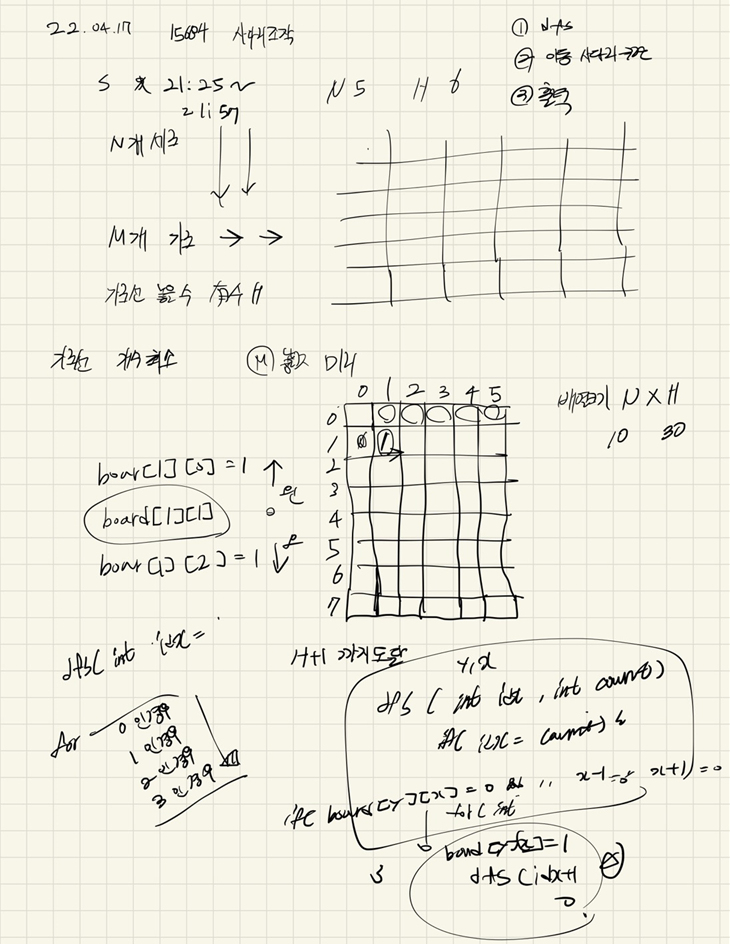 22.04.17 15684 사다리조작
① dfs
② 이동 사다리
③ 출력
S 21:25~
21:57
N 5 H 6
N개 세로
M개 가로 → →
가로선 놓을수 有수 H
가로선 개수 최소 Ⓜ 놓고 미리
0 1 2 3 4 5
0 0 0 0 0 0
1 0 1
2
3
4
5
6
7
배열크기 N X H
10 30
boar[1][0] = 1 ↑ 왼
board[1][1]
boar[1][2] = 1 ↓ 오
dfs( int idx =
H+1 까지 도달
for
0 인경우
1 인경우
2 인경우
3 인경우
y,x
dfs ( int idx , int count)
if( idx = count) {
if( board[y][x] = 0 && x-1 = 0 x+1) = 0
for( int
3
board[y][x] = 1
dfs(idx+1
0